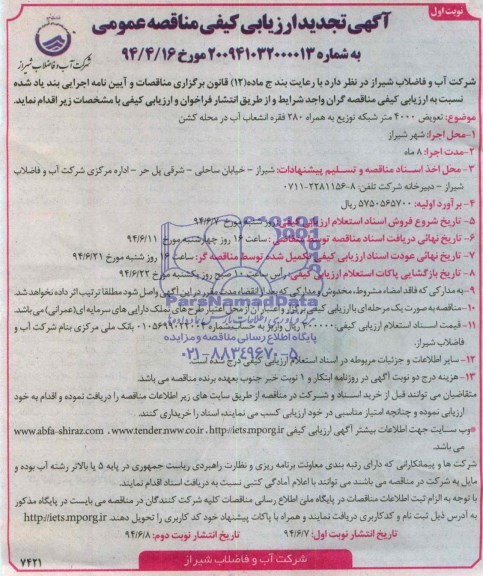 نوبت اول
آگهی تجدید ارزیابی کیفی مناقصه عمومی
به شماره ۲۰۰۹۴۱۰۳۲۰۰۰۰۱۳ مورخ ۹۴/۴/۱۶
شرکت آب و فاضلاب شیراز
شرکت آب و فاضلاب شیراز در نظر دارد با رعایت بند ج ماده (۱۲) قانون برگزاری مناقصات و آیین نامه اجرایی بند یاد شده
نسبت به ارزیابی کیفی مناقصه گران واجد شرایط و از طریق انتشار فراخوان و ارزیابی کیفی با مشخصات زیر اقدام نماید.
موضوع: تعویض ۴۰۰۰ متر شبکه توزیع به همراه ۲۸۰ فقره انشعاب آب در محله کشن
۱-محل اجرا: شهر شیراز
۲-مدت اجرا: ۸ ماه
۳- محل اخذ اسناد مناقصه و تسلیم پیشنهادات: شیراز - خیابان ساحلی - شرقی پل حر - اداره مرکزی شرکت آب و فاضلاب
شیراز - دبیرخانه شرکت تلفن: ۸-۲۲۸۱۱۵۶-۰۷۱۱
۴- برآورد اولیه: ۵۷۵۰۵۶۵۷۰۰ ریال
۵- تاریخ شروع فروش اسناد استعلام ارزیابی کیفی: روز شنبه مورخ ۹۴/۶/۷
۶- تاریخ نهائی دریافت اسناد مناقصه توسط متقاضی: ساعت ۱۶ روز چهارشنبه مورخ ۹۴/۶/۱۱
۷- تاریخ نهائی عودت اسناد ارزیابی کیفی تکمیل شده توسط مناقصه گر: ساعت ۱۶ روز شنبه مورخ ۹۴/۶/۲۱
۸- تاریخ بازگشایی پاکات استعلام ارزیابی کیفی: راس ساعت ۱۰ صبح روز یکشنبه مورخ ۹۴/۶/۲۲
۹- به مدارکی که فاقد امضاء مشروط، مخدوش و مدارکی که بعد از انقضاء مدت مقرر در این آگهی واصل شود مطلقا ترتیب اثر داده نخواهد شد.
۱۰-مناقصه به صورت یک مرحله‌ای با ارزیابی کیفی برگزار و اعتبار آن از محل اعتبار طرح های تملک دارایی های سرمایه‌ای (عمرانی) می باشد.
۱۱- قیمت اسناد استعلام ارزیابی کیفی: ریال واریز به حساب شماره بانک ملی مرکزی بنام شرکت آب و
فاضلاب شیراز.
۱۲- سایر اطلاعات و جزئیات مربوطه در اسناد استعلام ارزیابی کیفی درج شده است.
۱۳- هزینه درج دو نوبت آگهی در روزنامه ابتکار و ۱ نوبت خبر جنوب بعهده برنده مناقصه می باشد.
متقاضیان می توانند قبل از خرید اسناد و شرکت در مناقصه از طریق سایت های زیر اطلاعات مناقصه را دریافت نموده و اقدام به خود
ارزیابی نموده و چنانچه امتیاز مناسبی در خود ارزیابی کسب می نمایند، اسناد را خریداری کنند.
وب سایت جهت اطلاعات بیشتر آگهی ارزیابی کیفی www.abfa-shiraz.com ، www.tender.nww.co.ir ، http://iets.mporg.ir
می باشد.
شرکت ها و پیمانکارانی که دارای رتبه بندی معاونت برنامه ریزی و نظارت راهبردی ریاست جمهوری در پایه ۵ یا بالاتر رشته آب بوده و
مایل به شرکت در مناقصه می باشند می توانند با اعلام آمادگی کتبی نسبت به دریافت اسناد اقدام نمایند.
با توجه به الزام ثبت اطلاعات مناقصات در پایگاه ملی اطلاع رسانی مناقصات کلیه شرکت کنندگان در مناقصه می بایست در پایگاه مذکور
به آدرس ذیل ثبت نام و کد کاربری دریافت نمایند و همراه با پاکات پیشنهاد خود کد کاربری را تحویل دهند. http://iets.mporg.ir
تاریخ انتشار نوبت اول: ۹۴/۶/۷ تاریخ انتشار نوبت دوم: ۹۴/۶/۸
شرکت آب و فاضلاب شیراز
۷۴۲۱
ParsNamadData
پایگاه اطلاع رسانی مناقصه و مزایده
۰۲۱-۸۸۳۴۹۶۷۰-۵